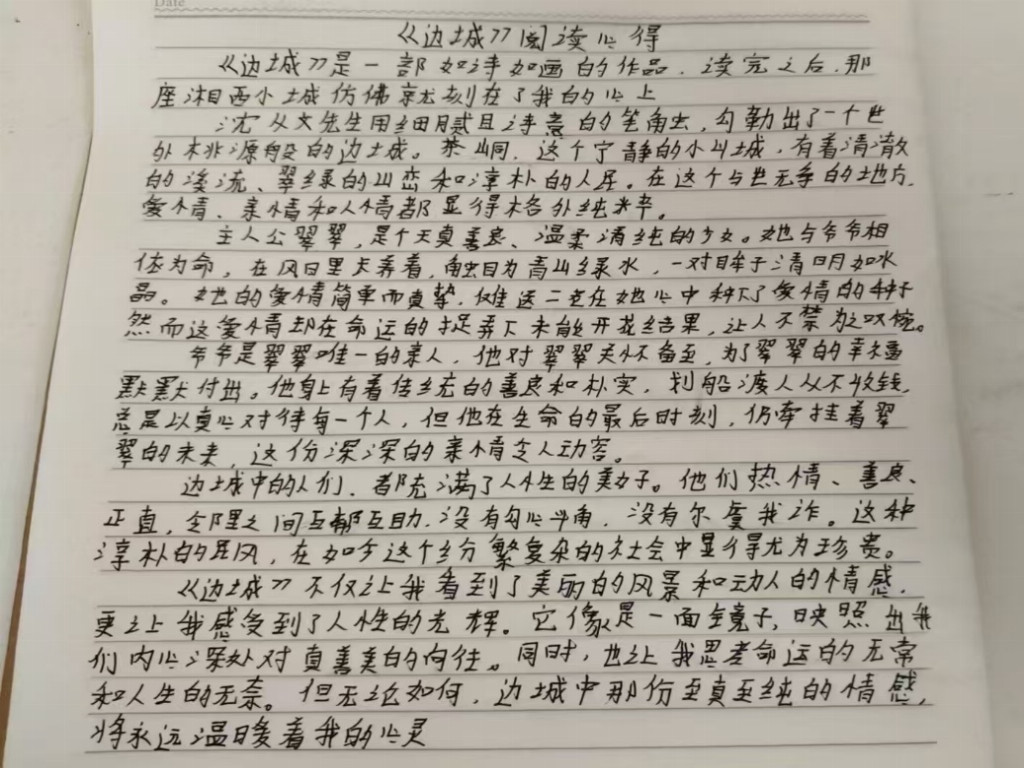 Date
《边城》阅读心得
《边城》是一部如诗如画的作品，读完之后，那
座湘西小城仿佛就刻在了我的心上
沈从文先生用细腻且诗意的笔触，勾勒出了一个世
外桃源般的边城。茶峒，这个宁静的小山城，有着清澈
的溪流、翠绿的山峦和淳朴的人民。在这个与世无争的地方，
爱情、亲情和人情都显得格外纯粹。
主人公翠翠，是个天真善良、温柔清纯的少女。她与爷爷相
依为命，在风日里长养着，触目为青山绿水，一对眸子清明如水
晶。她的爱情简单而真挚，傩送二老在她心中种下了爱情的种子
然而这爱情却在命运的捉弄下未能开花结果，让人不禁为之叹惋。
爷爷是翠翠唯一的亲人，他对翠翠关怀备至，为了翠翠的幸福
默默付出。他身上有着传统的善良和朴实，划船渡人从不收钱，
总是以真心对待每一个人，但他在生命的最后时刻，仍牵挂着翠
翠的未来，这份深深的亲情令人动容。
边城中的人们，都充满了人性的美好。他们热情、善良、
正直，邻里之间互帮互助，没有勾心斗角，没有尔虞我诈。这种
淳朴的民风，在如今这个纷繁复杂的社会中显得尤为珍贵。
《边城》不仅让我看到了美丽的风景和动人的情感，
更让我感受到了人性的光辉。它像是一面镜子，映照出我
们内心深处对真善美的向往。同时，也让我思考命运的无常
和人生的无奈。但无论如何，边城中那份至真至纯的情感，
将永远温暖着我的心灵